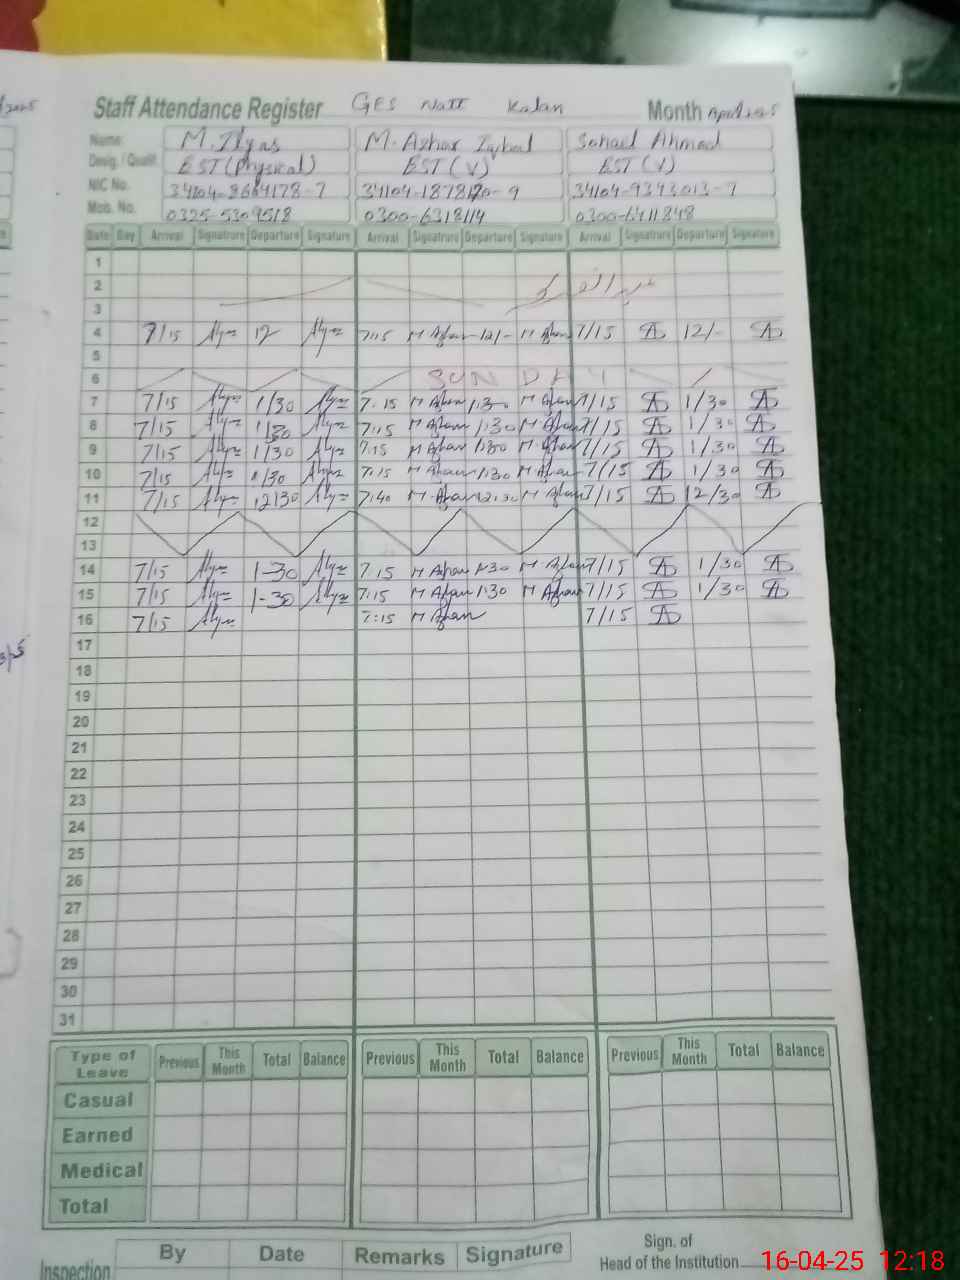 Staff Attendance Register GES Natt Kalan Month April 2025
Name: M. Ilyas M. Azhar Iqbal Sohail Ahmad
Desig. / Qualif. EST (Physical) EST (V) EST (V)
NIC No. 34104-8664178-7 34104-1878120-9 34104-9393013-7
Mob. No. 0325-5309518 0300-6318114 0300-6411848
Date Day Arrival Signature Departure Signature Arrival Signature Departure Signature Arrival Signature Departure Signature
1
2 عید الفطر
3
4 7/15 12 7:15 12/- 7/15 12/-
5
6 SUNDAY
7 7/15 1/30 7:15 1:30 7/15 1/30
8 7/15 1/30 7:15 1:30 7/15 1/30
9 7/15 1/30 7:15 1:30 7/15 1/30
10 7/15 1/30 7:15 1:30 7/15 1/30
11 7/15 12/30 7:40 12:30 7/15 12/30
12
13
14 7/15 1-30 7:15 1:30 7/15 1/30
15 7/15 1-30 7:15 1:30 7/15 1/30
16 7/15 7:15 7/15
17
18
19
20
21
22
23
24
25
26
27
28
29
30
31
Type of Leave Previous This Month Total Balance Previous This Month Total Balance Previous This Month Total Balance
Casual
Earned
Medical
Total
Inspection By Date Remarks Signature Sign. of Head of the Institution
16-04-25 12:18